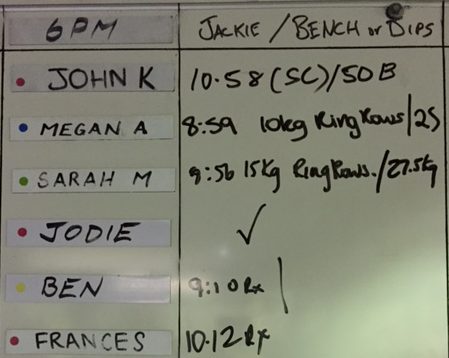 6PM JACKIE / BENCH or DIPS
JOHN K 10.58 (SC)/50B
MEGAN A 8:59 10kg Ring Rows/25
SARAH M 9:56 15Kg Ring Rows./27.5kg
JODIE ✓
BEN 9:10 Rx |
FRANCES 10.12 Rx